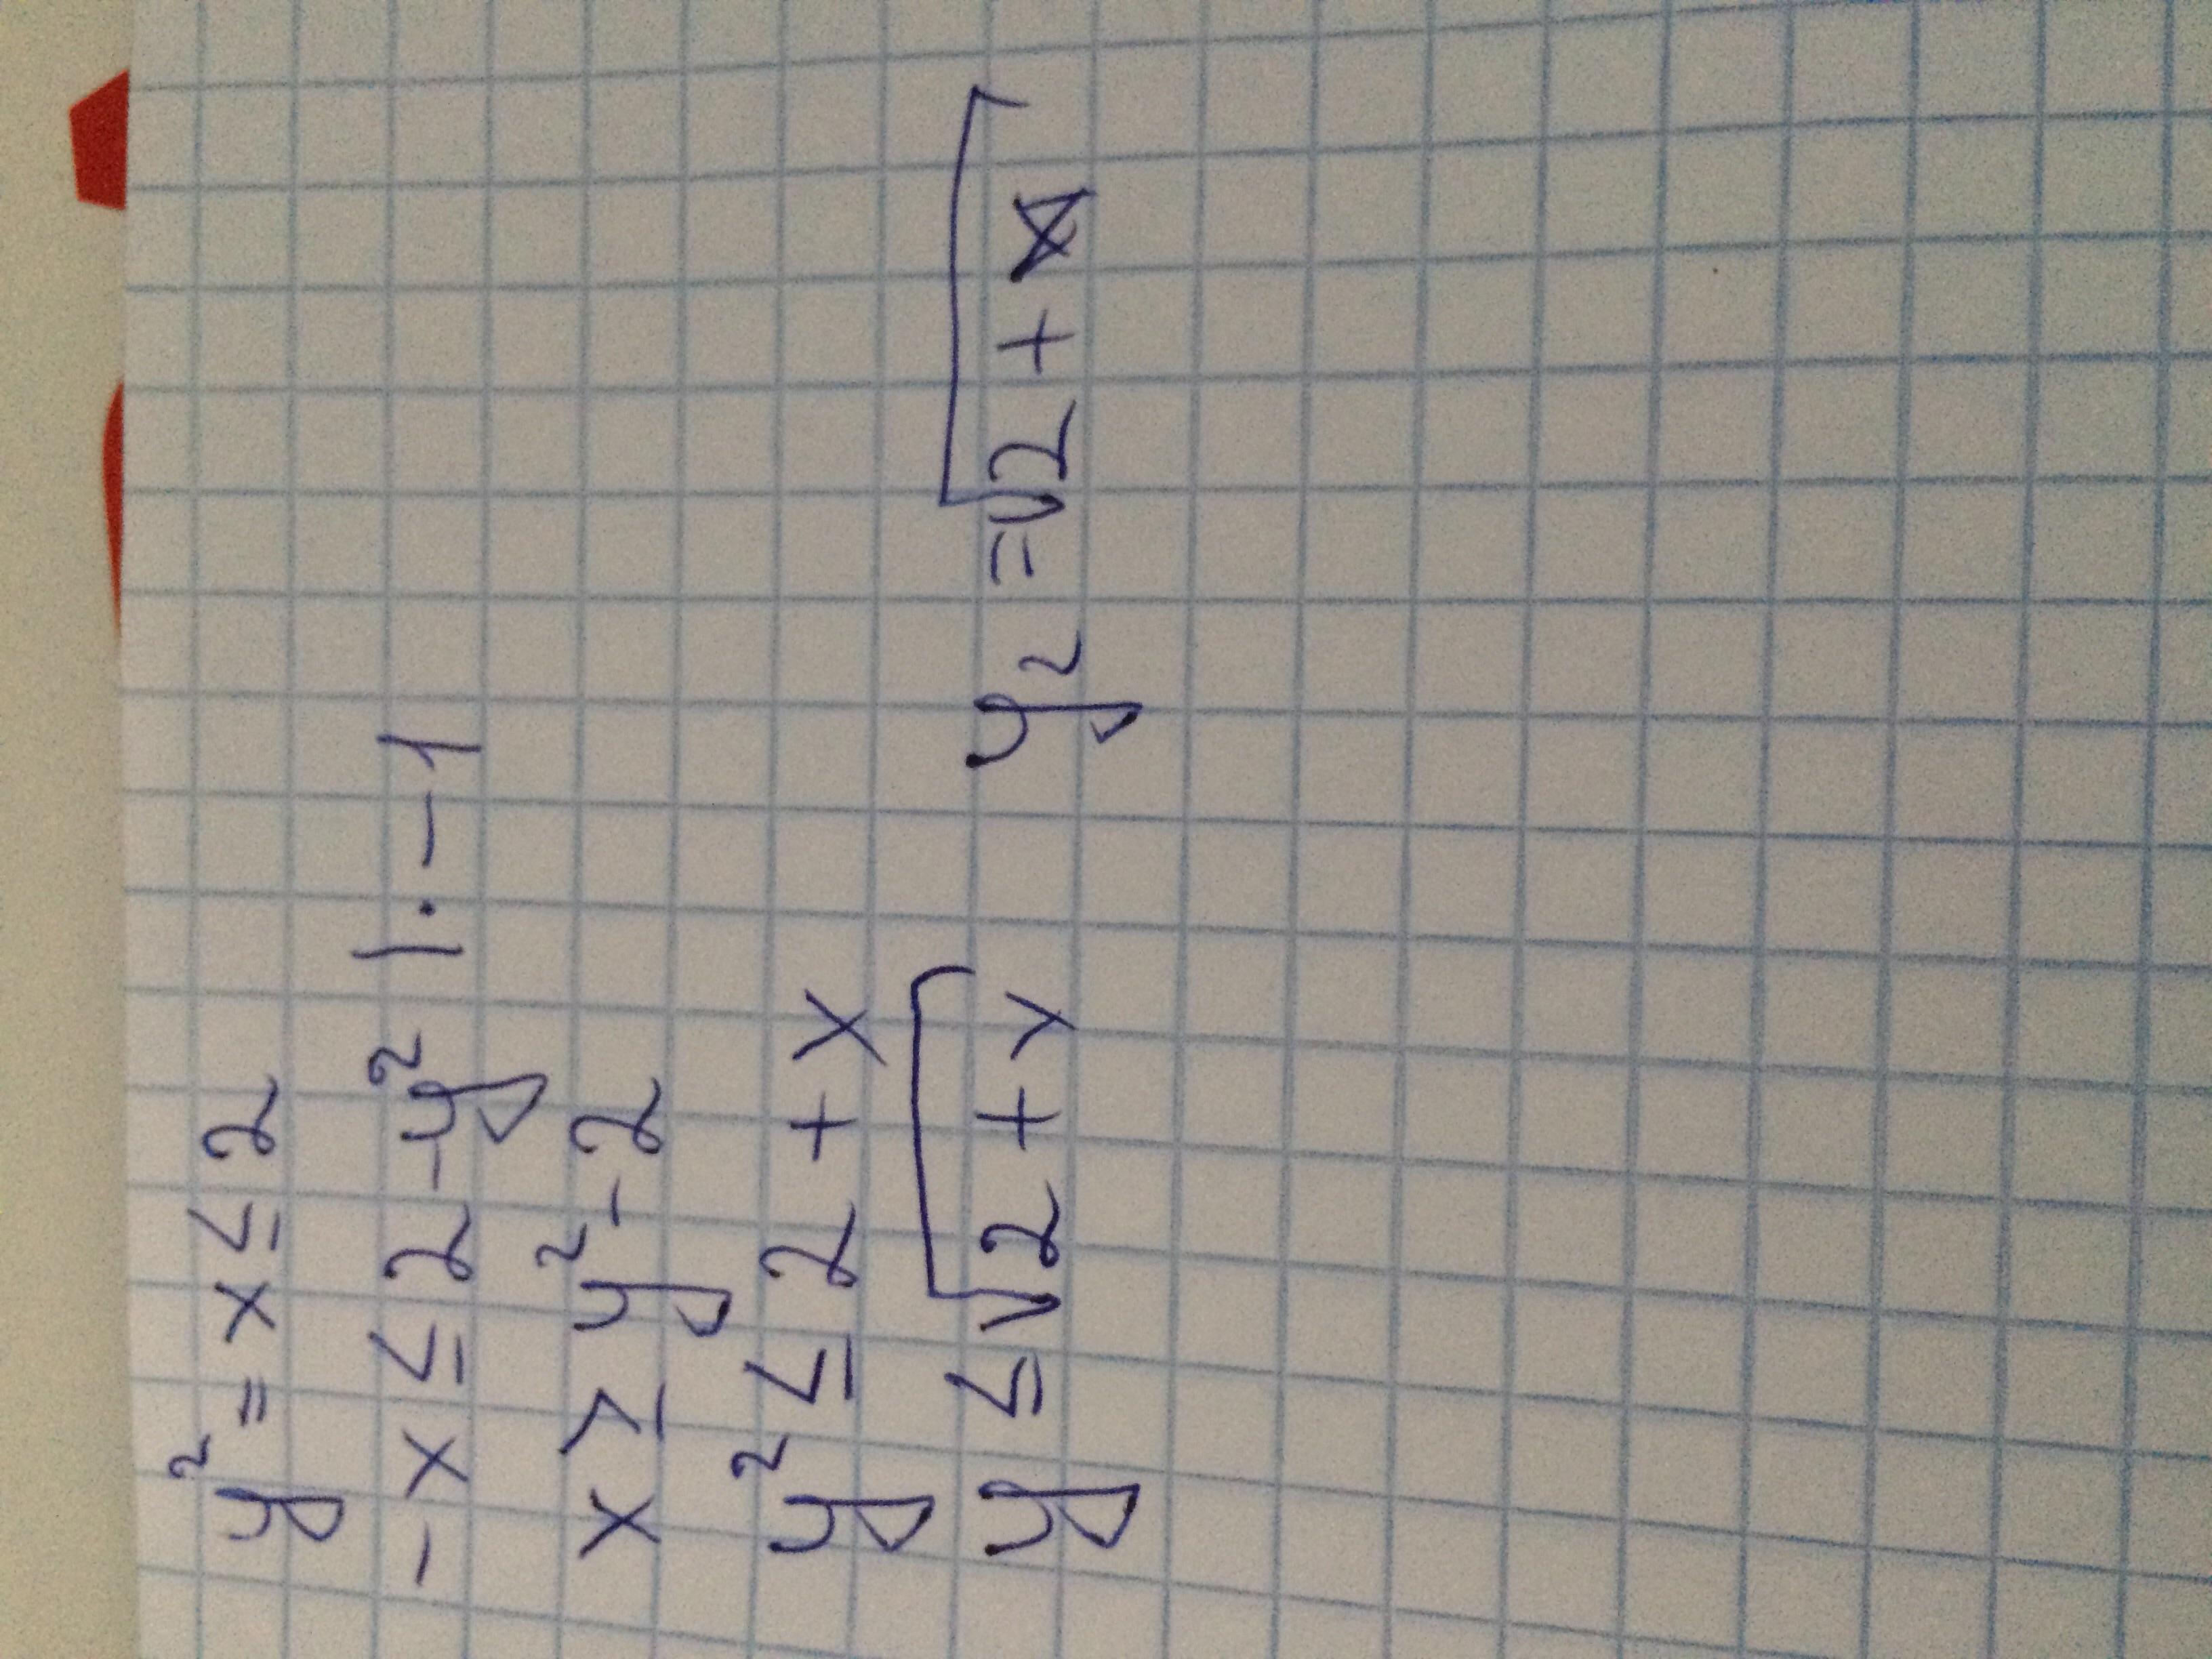 y² = x ≤ 2
-x ≤ 2 - y² | · -1
x ≥ y² - 2
y² ≤ 2 + x
y ≤ √2 + y y² = √2 +